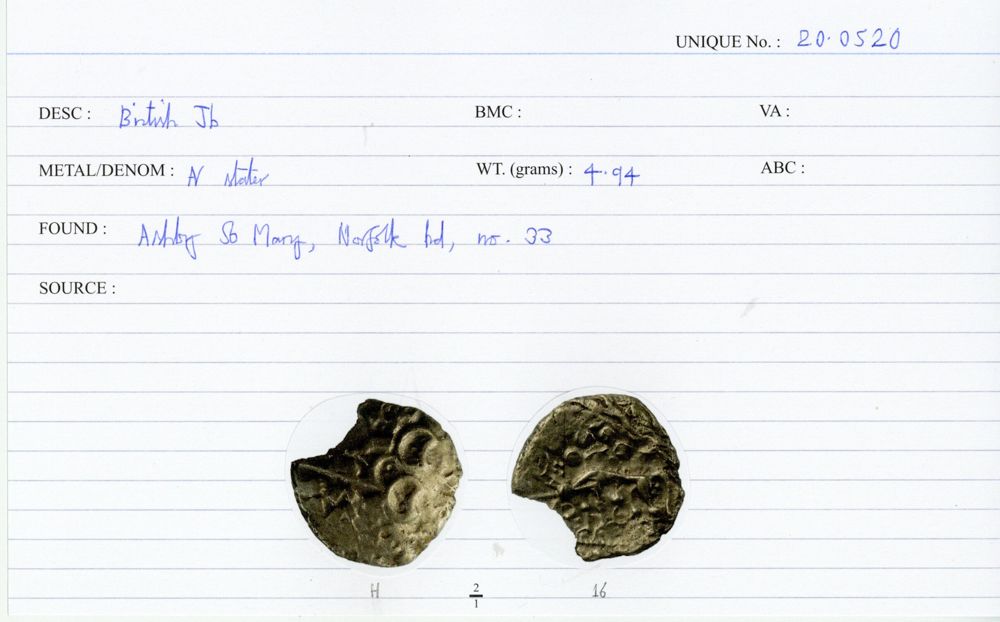 UNIQUE No. : 20.0520
DESC : British Jb BMC : VA :
METAL/DENOM : N stater WT. (grams) : 4.94 ABC :
FOUND : Ashby St Mary, Norfolk hd, no. 33
SOURCE :
H 2/1 16